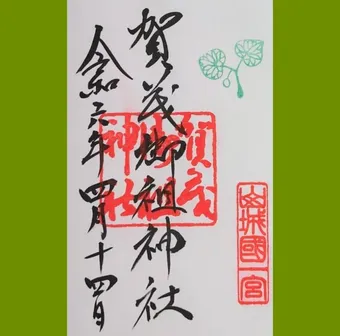 賀茂御祖神社
令和六年四月十四日
山城國一宮
賀茂御祖神社